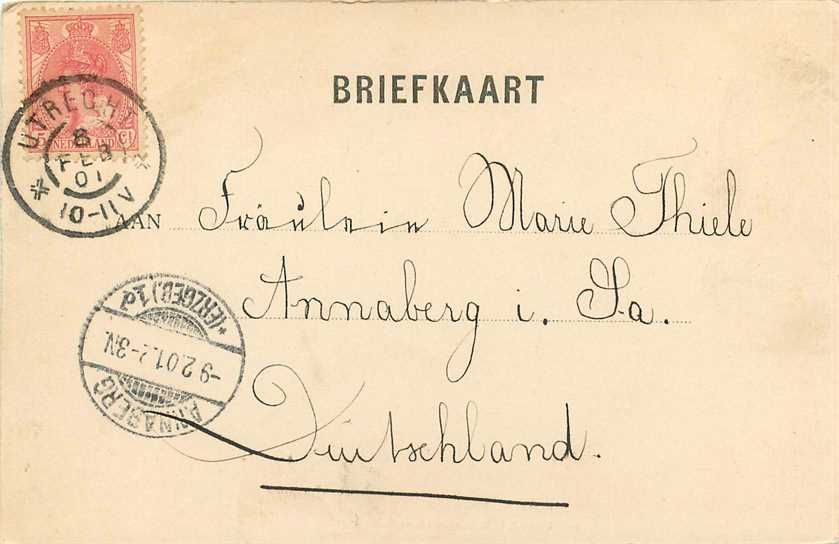 BRIEFKAART
5 Ct
NEDERLAND
UTRECHT
8
FEB
01
10-11V
AAN Fräulein Marie Thiele
Annaberg i. Sa.
Deutschland.
ANNABERG
-9.2.01.2-3N.
*(ERZGEB.)1d